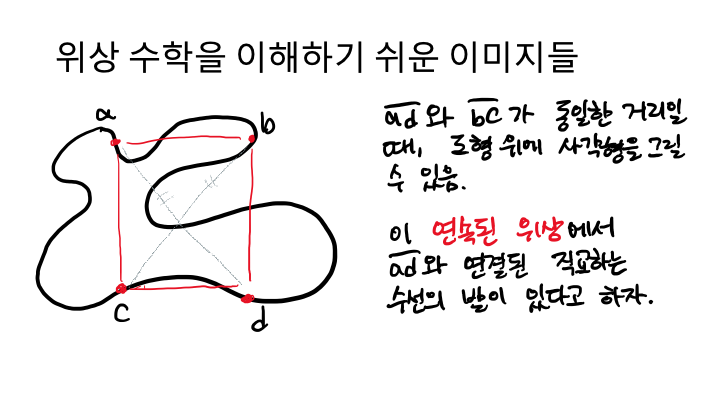 위상 수학을 이해하기 쉬운 이미지들
a
b
ad 와 bc 가 동일한 거리일
때, 도형 위에 사각형을 그릴
수 있음.
이 연속된 위상에서
ad와 연결된 직교하는
수선의 발이 있다고 하자.
c
d